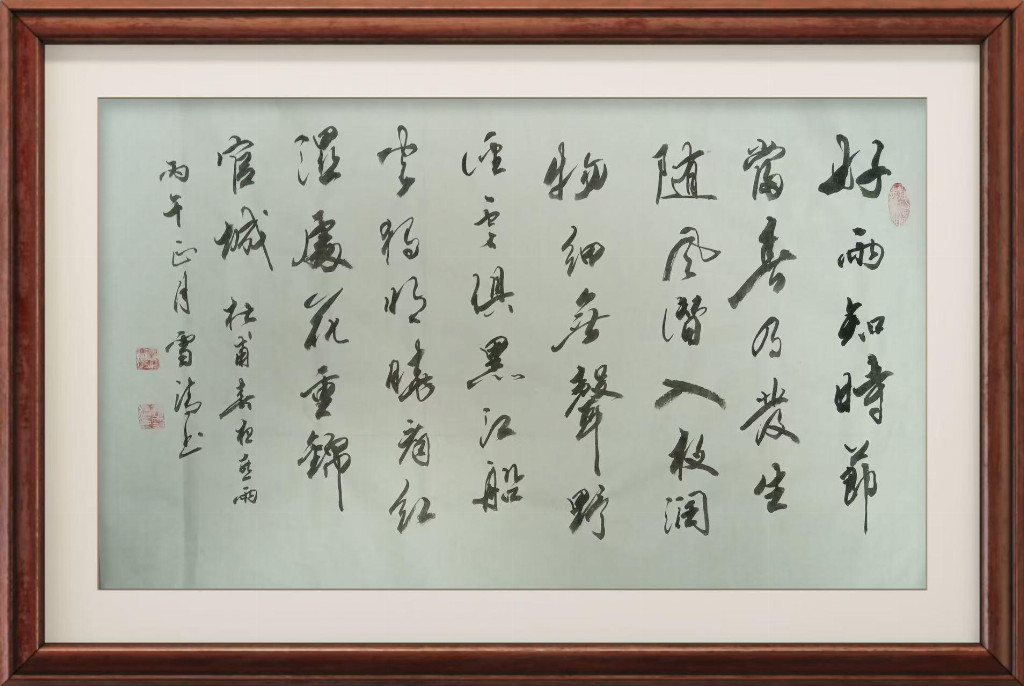 好雨知時節
當春乃發生
随风潛入夜润
物細無聲野
径雲俱黑江船
火獨明曉看紅
濕處花重錦
官城 杜甫春夜喜雨
丙午正月雪涛书